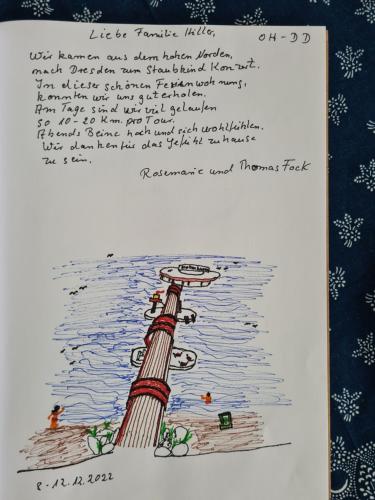 Liebe Familie Hiller,
OH-DD
Wir kamen aus dem hohen Norden,
nach Dresden zum Staubkind Konzert.
In dieser schönen Ferienwohnung,
konnten wir uns gut erholen.
Am Tage sind wir viel gelaufen
so 10-20 Km. pro Tour.
Abends Beine hoch und sich wohlfühlen.
Wir danken für das Gefühl zuhause
zu sein.
Rosemarie und Thomas Fock
8.-12.12.2022